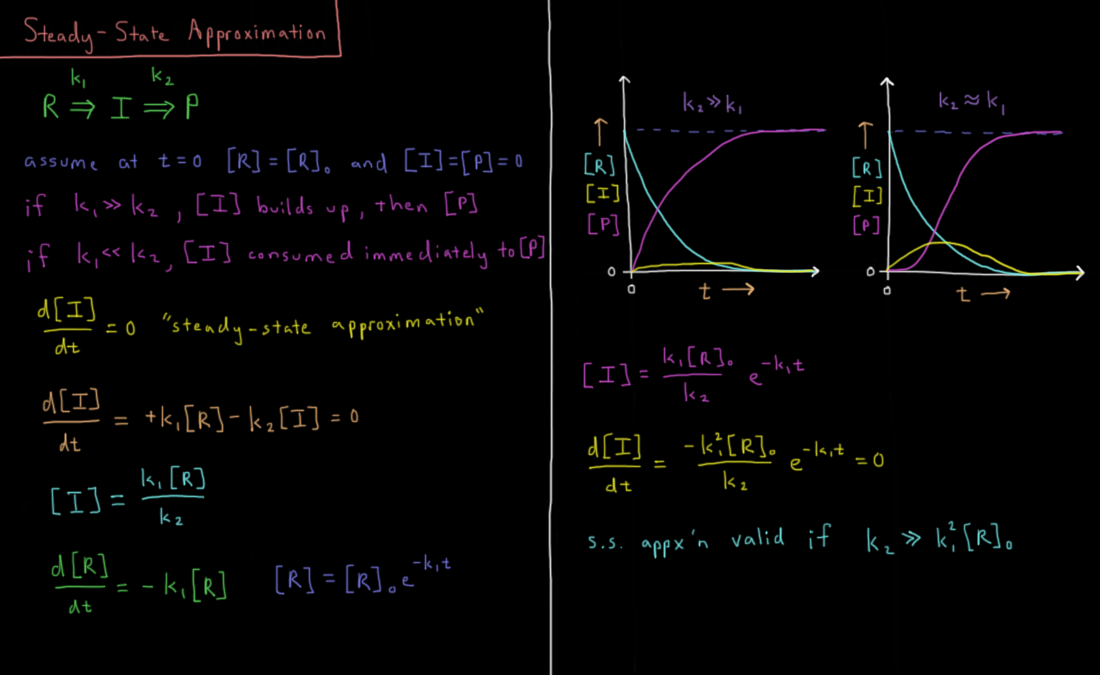 Steady-State Approximation
k₁ k₂
R ⇒ I ⇒ P
assume at t=0 [R]=[R]₀ and [I]=[P]=0
if k₁ ≫ k₂, [I] builds up, then [P]
if k₁ << k₂, [I] consumed immediately to [P]
d[I]/dt = 0 "steady-state approximation"
d[I]/dt = +k₁[R] - k₂[I] = 0
[I] = k₁[R]/k₂
d[R]/dt = - k₁[R] [R] = [R]₀e^(-k₁t)
k₂ ≫ k₁
↑
[R]
[I]
[P]
0
0
t →
k₂ ≈ k₁
↑
[R]
[I]
[P]
0
0
t →
[I] = k₁[R]₀/k₂ e^(-k₁t)
d[I]/dt = -k₁²[R]₀/k₂ e^(-k₁t) = 0
s.s. appx'n valid if k₂ ≫ k₁²[R]₀